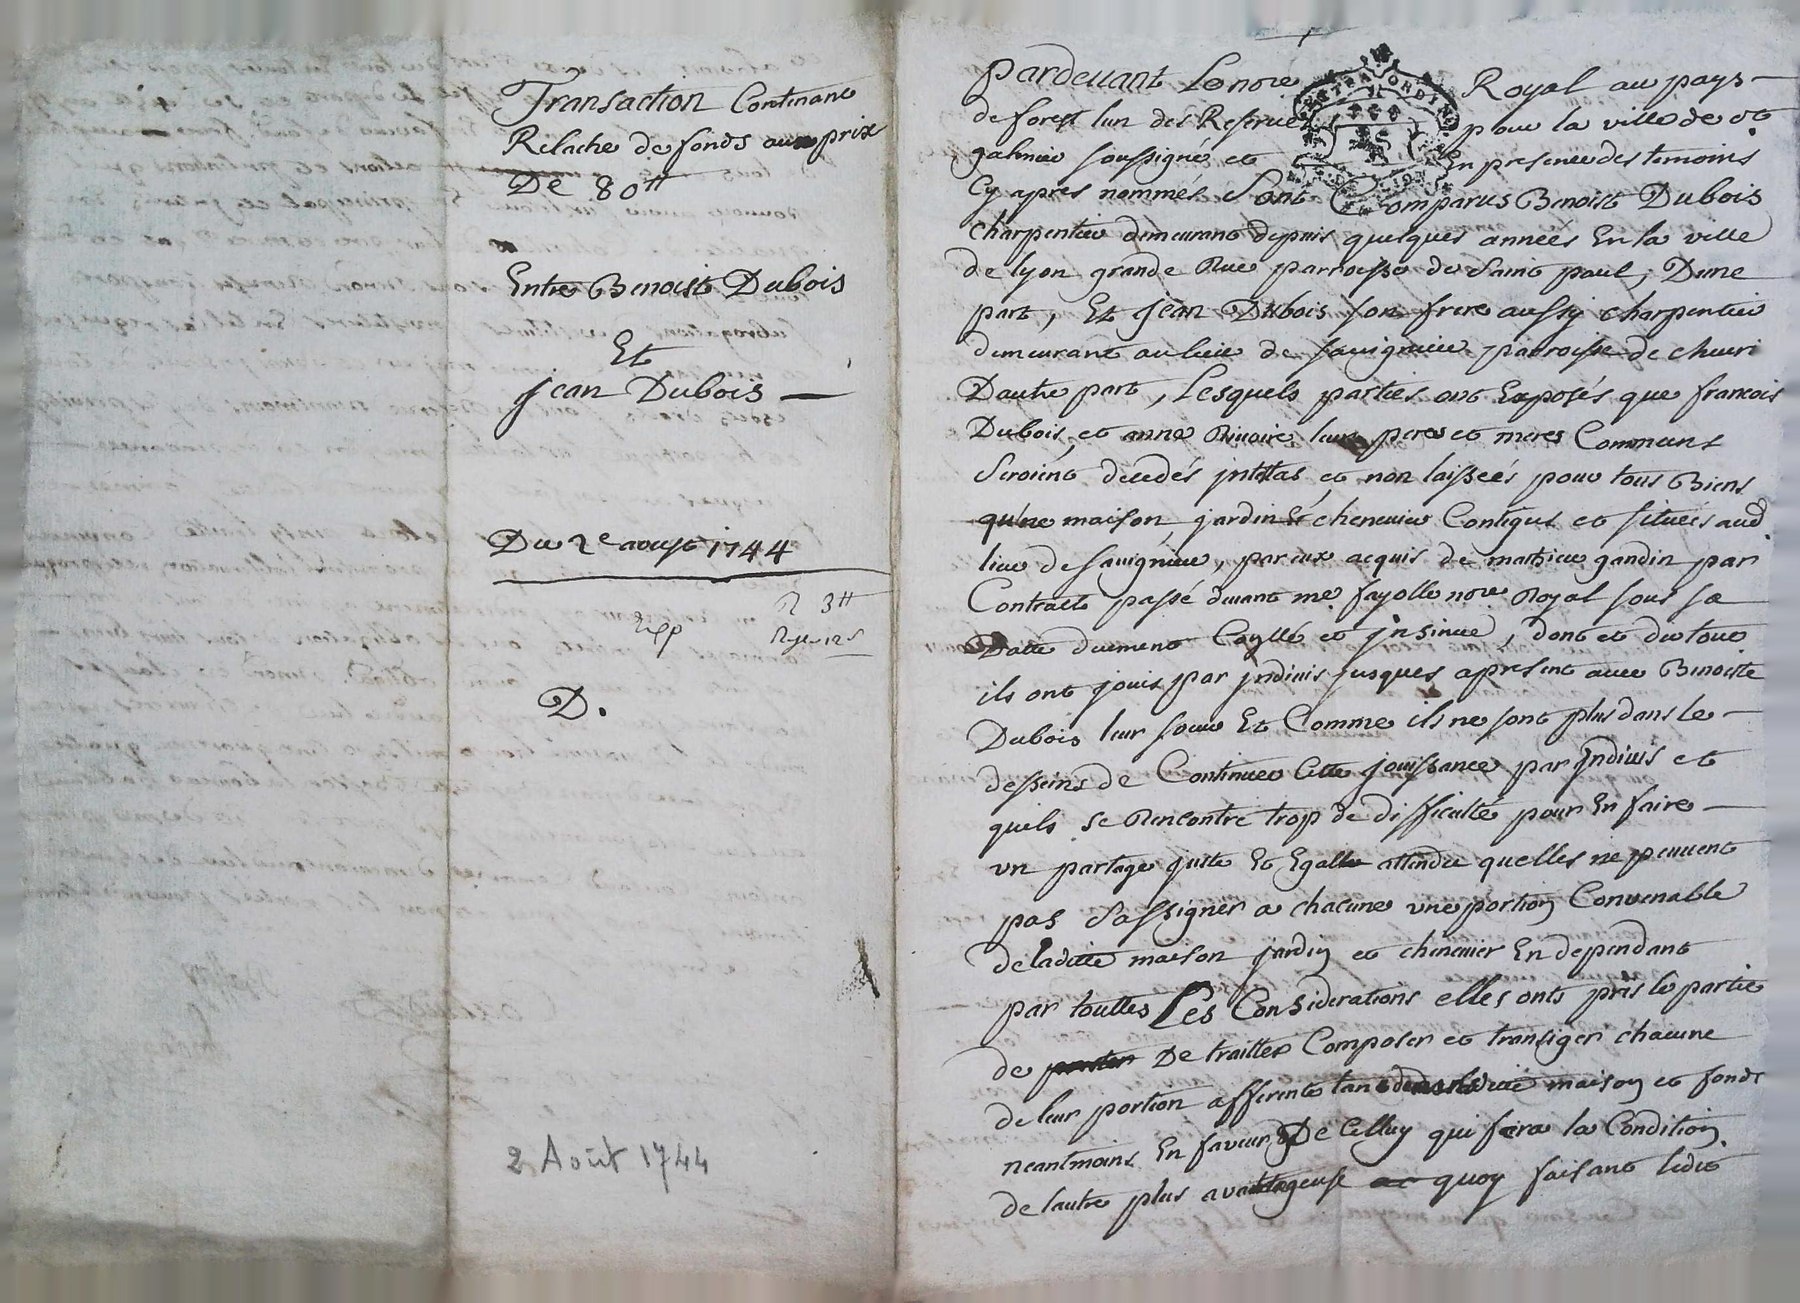 Transaction Contenant
Relache de fonds au prix
De 80tt
Entre Benoist Dubois
Et
Jean Dubois
Du 2e aoust 1744
R 3tt
Exp
D.
2 Août 1744
Pardevant Le nore Royal au pays
de forest lun des Reservés pour la ville de st
galmier soussigné et En presence des temoins
Cy apres nommés Sont Comparus Benoist Dubois
charpentier demeurant depuis quelques années En la ville
de lyon grande Rue parroisse de Saint paul, Dune
part, Et Jean Dubois son frere aussy charpentier
demeurant au lieu de savignieu parroisse de
Dautre part, Lesquels parties ont Exposés que francois
Dubois, et anne leurs peres et meres Communs
Seroient decedés intestas et non laissées pour tous Biens
qu'ne maison, jardin Et chenevier Contigus et situées aud.
lieu de savignieu, par eux acquis de mathieu gandin par
Contract passé devant me. fayolle nore Royal sous sa
Datte duement et Insinué, dont et du tout
ils ont jouis par Indivis jusques apresent avec Benoiste
Dubois leur soeur Et Comme ils ne sont plus dans le
desseins de Continuer Cette jouissance par Indivis et
quils se Rencontre trop de difficulté pour En faire
vn partage juste Et Egalle attendu quelles ne peuvent
pas S'assigner a chacune vne portion Convenable
de laditte maison jardin et chenevier En dependant
par touttes Les Considerations elles onts pris le partie
de De traitter Composer et transiger chacune
de leur portion afferente tant maison et fonds
neantmoins En faveur De Celluy qui fera la Condition
de lautre plus avantageuse quoy faisant ledit